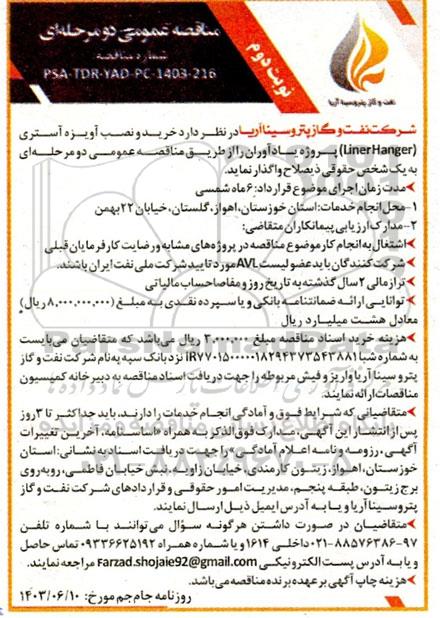 مناقصه عمومی دو مرحله‌ای
شماره مناقصه
PSA-TDR-YAD-PC-1403-216
نوبت دوم
نفت و گاز پتروسینا آریا
شرکت نفت و گاز پتروسینا آریا در نظر دارد خرید و نصب آویزه آستری
(Liner Hanger) پروژه یادآوران را از طریق مناقصه عمومی دو مرحله‌ای
به یک شخص حقوقی ذیصلاح واگذار نماید.
مدت زمان اجرای موضوع قرارداد: ۶ ماه شمسی
۱- محل انجام خدمات: استان خوزستان، اهواز، گلستان، خیابان ۲۲ بهمن
۲- مدارک ارزیابی پیمانکاران متقاضی:
اشتغال به انجام کار موضوع مناقصه در پروژه‌های مشابه و رضایت کارفرمایان قبلی
شرکت کنندگان باید عضو لیست AVL مورد تایید شرکت ملی نفت ایران باشند.
تراز مالی ۲ سال گذشته به تاریخ روز و مفاصاحساب مالیاتی
توانایی ارائه ضمانتنامه بانکی و یا سپرده نقدی به مبلغ (۸,۰۰۰,۰۰۰,۰۰۰ ریال)
معادل هشت میلیارد ریال
هزینه خرید اسناد مناقصه مبلغ ۳,۰۰۰,۰۰۰ ریال می‌باشد که متقاضیان می‌بایست
به شماره شبا IR۷۷۰۱۵۰۰۰۰۰۱۸۲۹۴۳۷۳۵۴۳۸۸۱ نزد بانک سپه به نام شرکت نفت و گاز
پتروسینا آریا واریز و فیش مربوطه را جهت دریافت اسناد مناقصه به دبیرخانه کمیسیون
مناقصات ارائه نمایند.
متقاضیانی که شرایط فوق و آمادگی انجام خدمات را دارند، باید حداکثر تا ۳ روز
پس از انتشار این آگهی، مدارک فوق الذکر به همراه «اساسنامه، آخرین تغییرات
آگهی، رزومه و نامه اعلام آمادگی» را جهت دریافت اسناد به نشانی: استان
خوزستان، اهواز، زیتون کارمندی، خیابان زاویه، نبش خیابان فاطمی، روبه‌روی
برج زیتون، طبقه پنجم، مدیریت امور حقوقی و قراردادهای شرکت نفت و گاز
پتروسینا آریا و یا به آدرس ایمیل ذیل ارسال نمایند.
متقاضیان در صورت داشتن هرگونه سؤال می‌توانند با شماره تلفن
۰۲۱-۸۸۵۷۶۳۸۶-۹۷ داخلی ۱۶۱۴ و یا شماره همراه ۰۹۳۳۶۶۲۵۱۹۲ تماس حاصل
و یا به آدرس پست الکترونیکی Farzad.shojaie92@gmail.com مراجعه نمایند.
هزینه چاپ آگهی بر عهده برنده مناقصه می‌باشد.
روزنامه جام جم مورخ: ۱۴۰۳/۰۶/۱۰